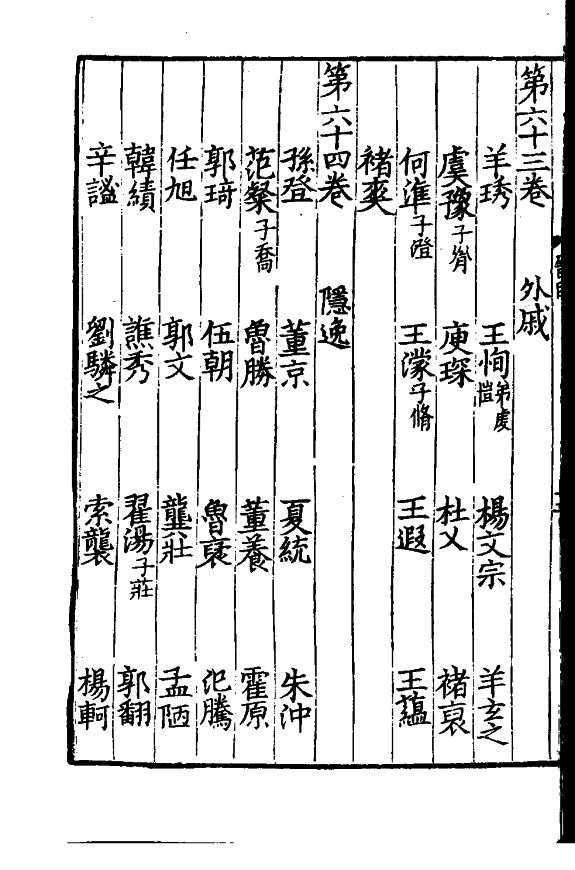 第六十三卷 外戚
羊琇 王恂弟虔愷 楊文宗 羊玄之
虞豫子胤 庾琛 杜乂 褚裒
何準子澄 王濛子脩 王遐 王蘊
褚爽
第六十四卷 隱逸
孫登 董京 夏統 朱沖
范粲子喬 魯勝 董養 霍原
郭琦 伍朝 魯褒 氾騰
任旭 郭文 龔壯 孟陋
韓績 譙秀 翟湯子莊 郭翻
辛謐 劉驎之 索襲 楊軻